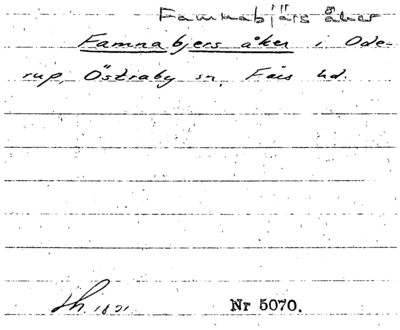 Famnabjärs åker
Famnabjers åker i Ode-
rup, Östraby sn, Färs hd.
Nr 5070.